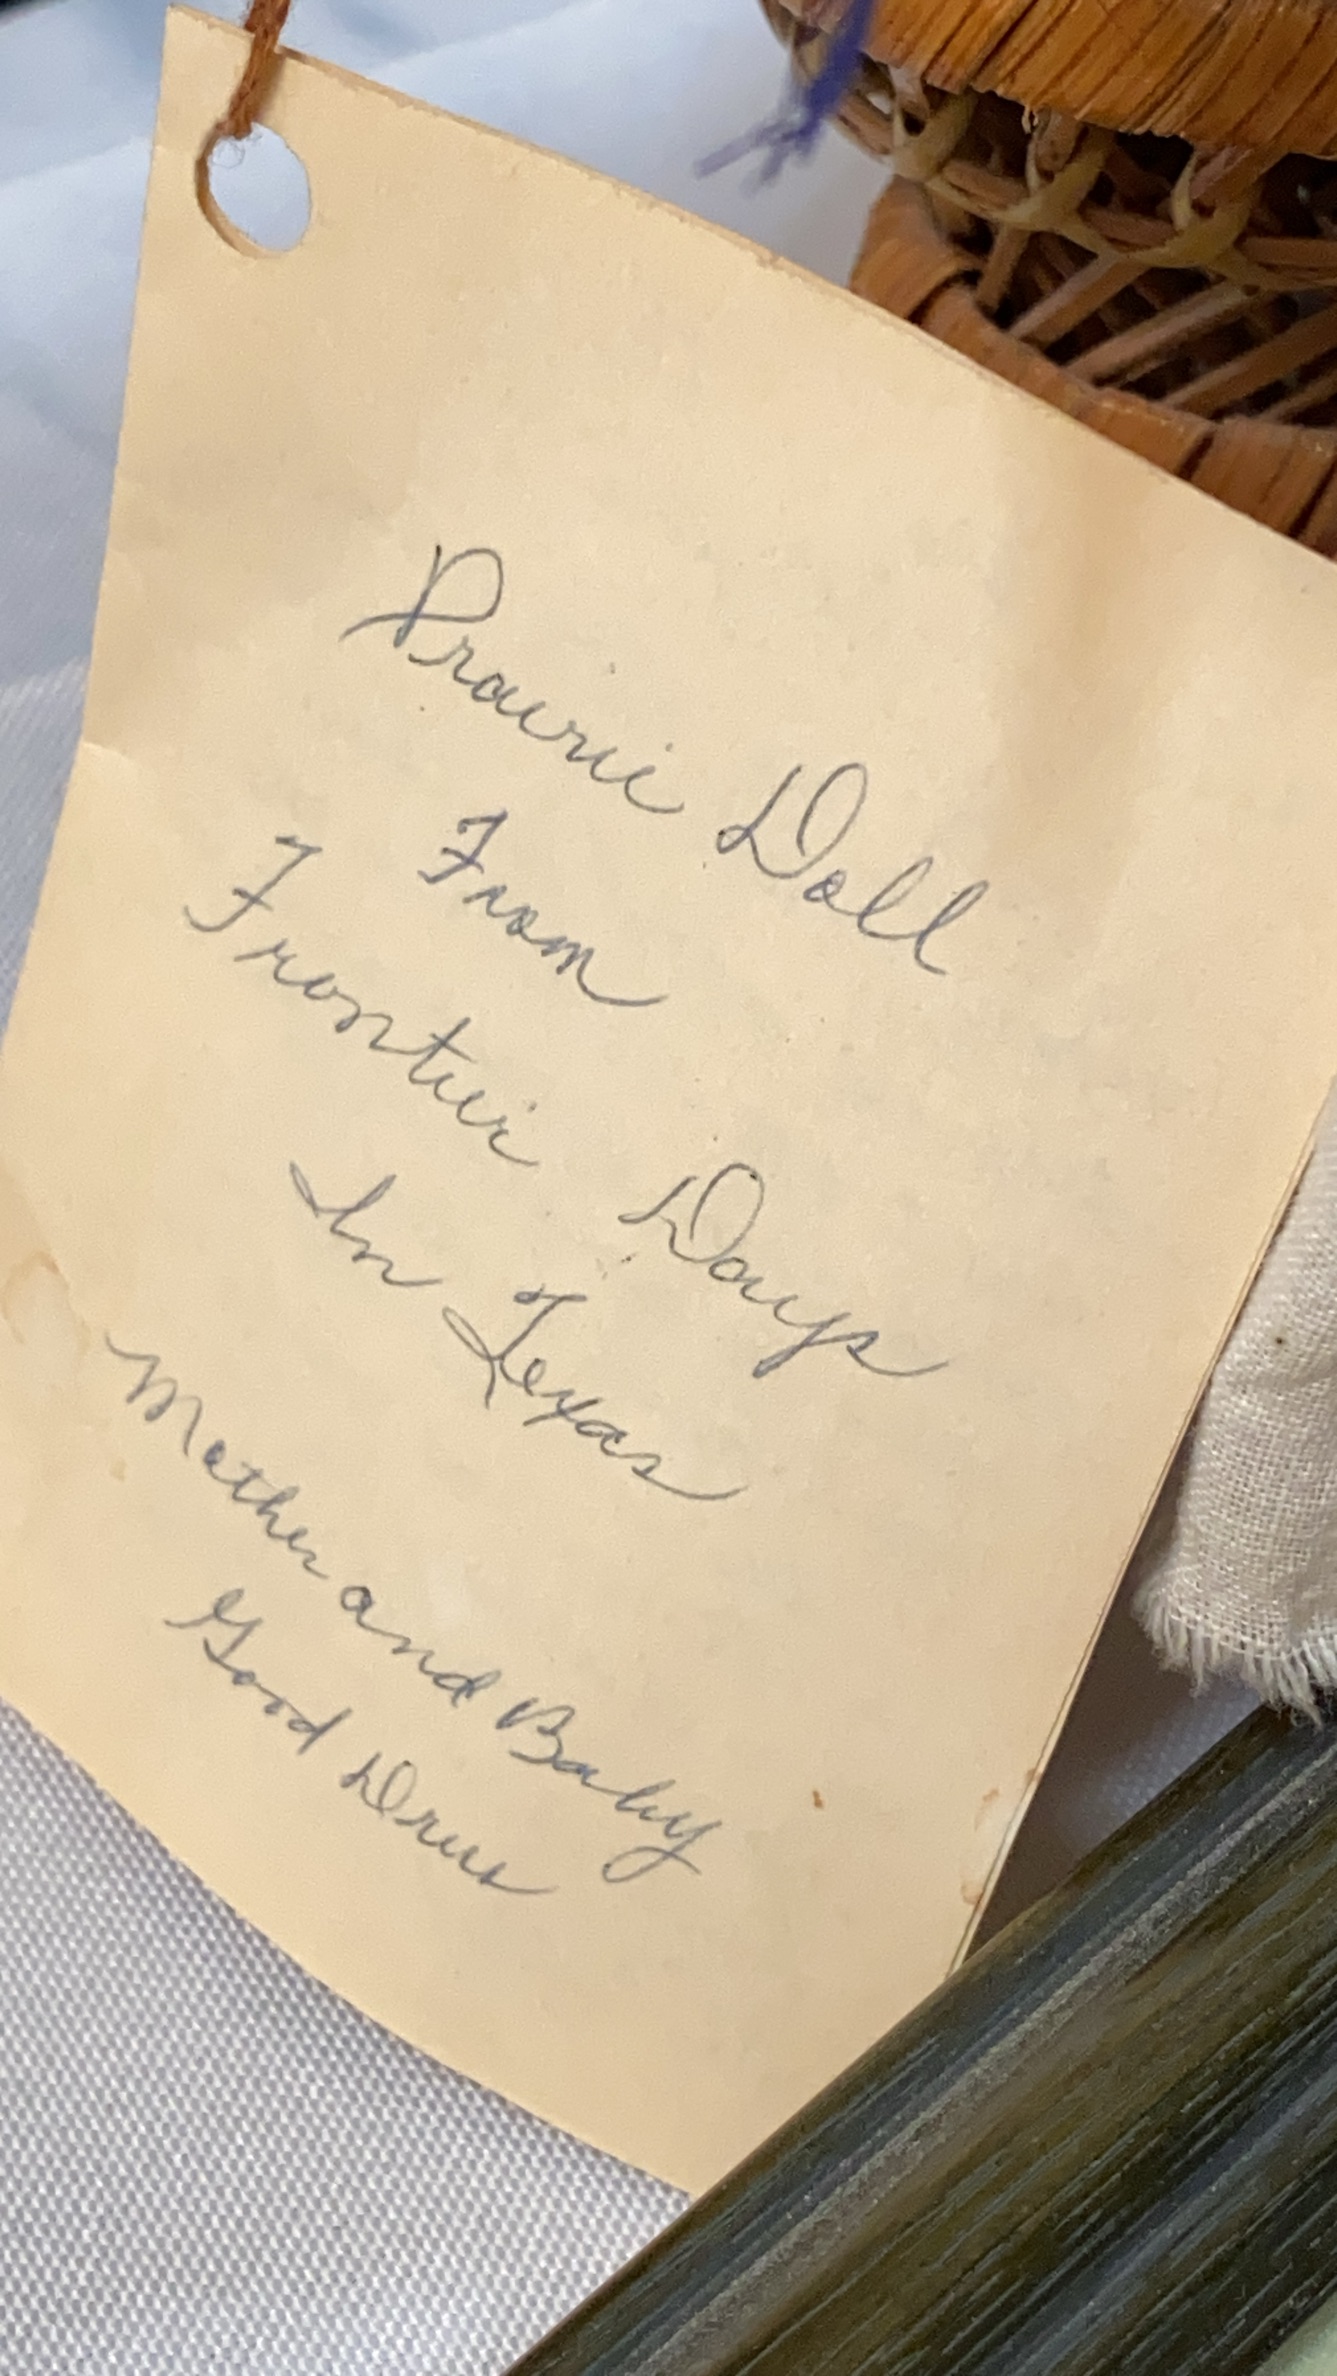 Prairie Doll
From
Frontier Days
In Texas
Mother and Baby
Good Dress